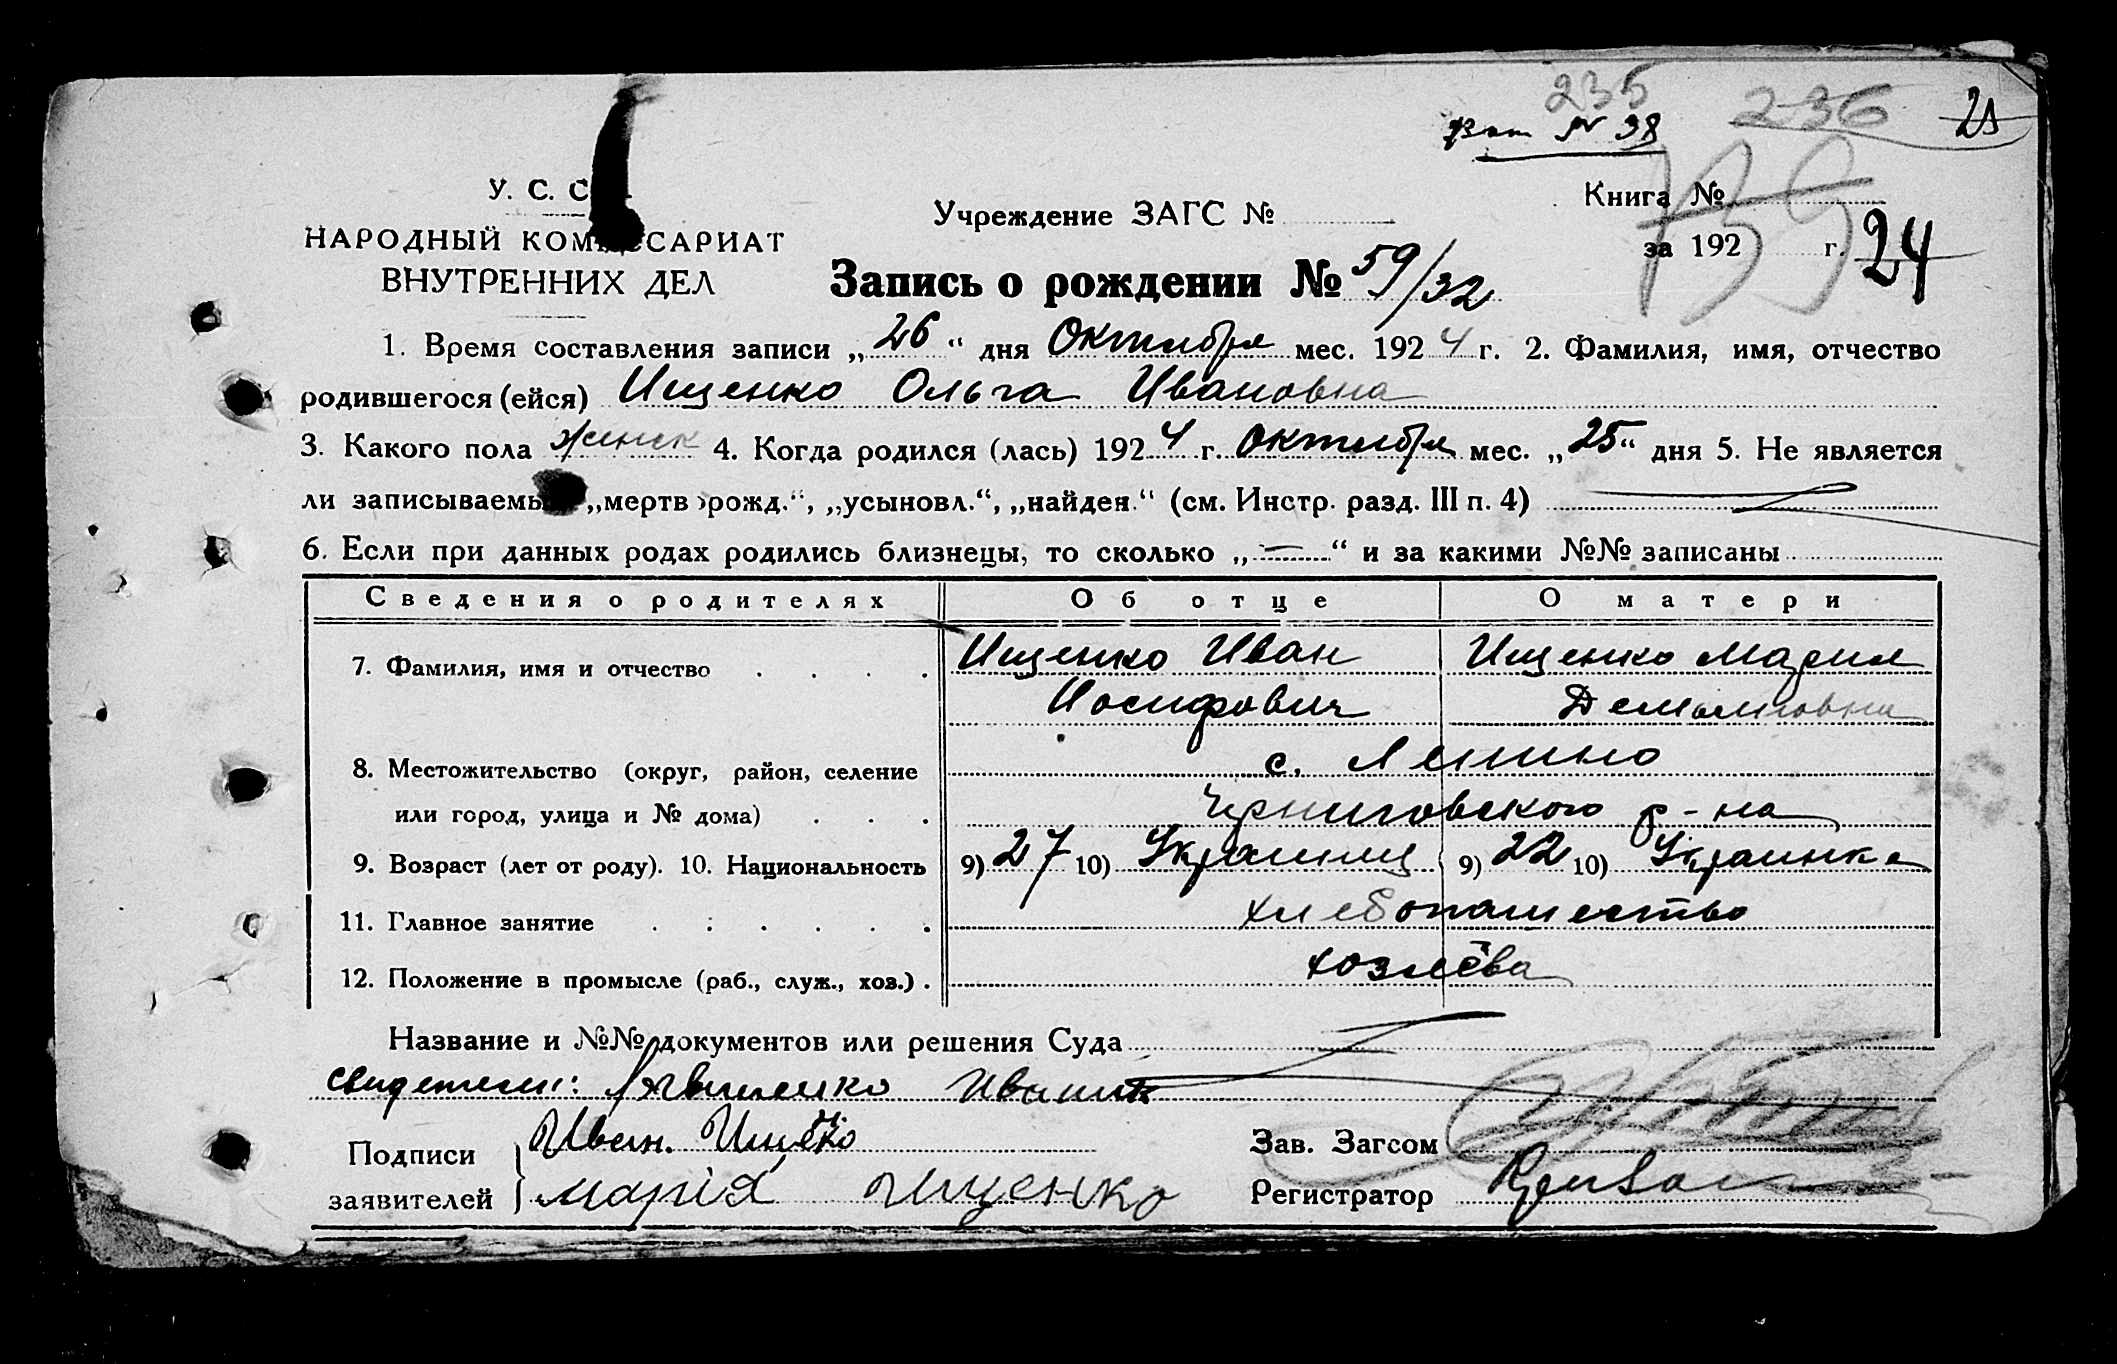 235
236
№ 38
У. С. С.
Книга №
Учреждение ЗАГС №
139
НАРОДНЫЙ КОМИССАРИАТ
за 192 г. 24
ВНУТРЕННИХ ДЕЛ
Запись о рождении № 59/32
1. Время составления записи „26“ дня Октября мес. 1924 г. 2. Фамилия, имя, отчество
родившегося (ейся) Ищенко Ольга Ивановна
3. Какого пола женск 4. Когда родился (лась) 1924 г. октября мес. „25“ дня 5. Не является
ли записываемый „мерворожд.“, „усыновл.“, „найден.“ (см. Инстр. разд. III п. 4)
6. Если при данных родах родились близнецы, то сколько „—“ и за какими №№ записаны
Сведения о родителях Об отце О матери
7. Фамилия, имя и отчество Ищенко Иван Ищенко Мария
Иосифович
8. Местожительство (округ, район, селение с. Ленино
или город, улица и № дома) Черниговского р-на
9. Возраст (лет от роду). 10. Национальность 9) 27 10) Украинец 9) 22 10) Украинка
11. Главное занятие хлебопашество
12. Положение в промысле (раб., служ., хоз.) хозяева
Название и №№ документов или решения Суда
свидетели:
Подписи Иван Ищенко Зав. Загсом
заявителей Марія Ищенко Регистратор